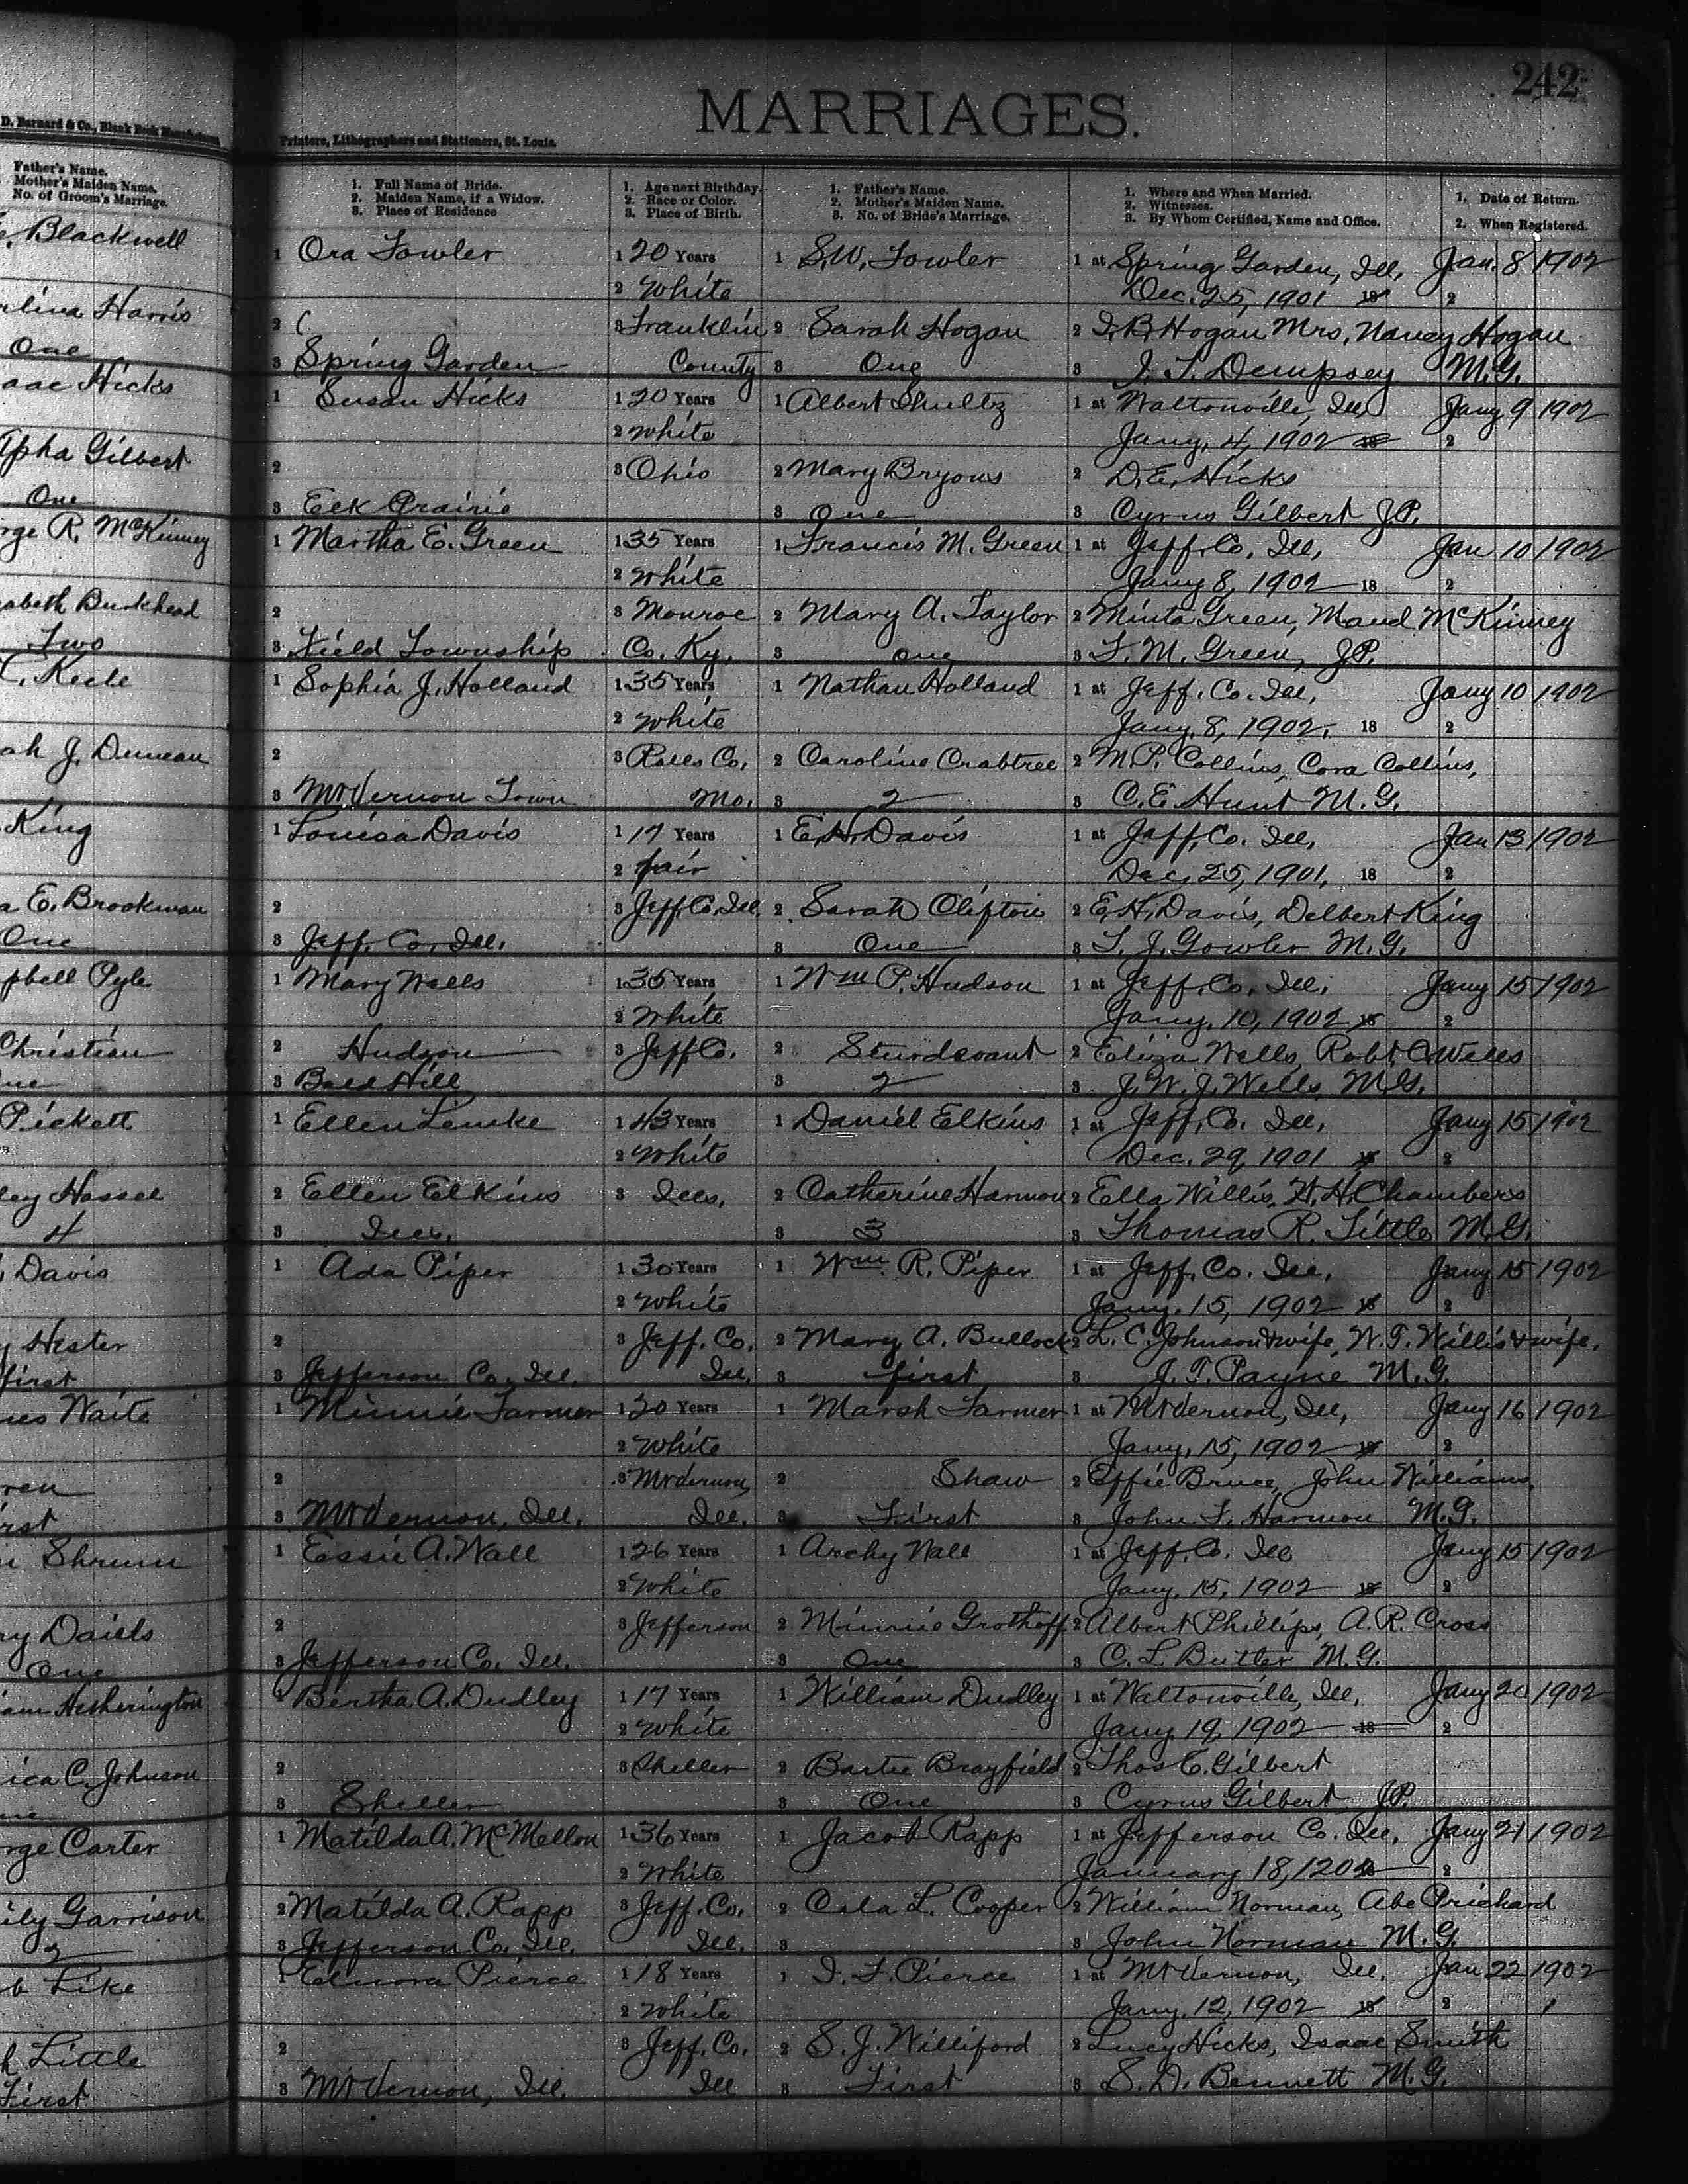 242
MARRIAGES.
D. Barnard & Co., Blank Book Manufacturers,
Printers, Lithographers and Stationers, St. Louis.
Father's Name.
Mother's Maiden Name.
No. of Groom's Marriage.
1. Full Name of Bride.
2. Maiden Name, if a Widow.
3. Place of Residence
1. Age next Birthday.
2. Race or Color.
3. Place of Birth.
1. Father's Name.
2. Mother's Maiden Name.
3. No. of Bride's Marriage.
1. Where and When Married.
2. Witnesses.
3. By Whom Certified, Name and Office.
1. Date of Return.
2. When Registered.
Blackwell
1 Ora Fowler 1 20 Years 1 S.W. Fowler 1 at Spring Garden, Ill, Jan. 8 1902
2 White Dec. 25, 1901 18 2
rlina Harris
2 3 Franklin 2 Sarah Hogan 2 I.B. Hogan Mrs, Nancy Hogan
One
3 Spring Garden County 3 One 3 J. T. Dempsey M.G.
aac Hicks
1 Susan Hicks 1 20 Years 1 Albert Shultz 1 at Waltonville, Ill Jany 9 1902
2 White Jany. 4, 1902 18 2
lpha Gilbert
2 3 Ohio 2 Mary Bryous 2 D.E. Hicks
One
3 Elk Prairie 3 One 3 Cyrus Gilbert J.P.
rge R. McKinney
1 Martha E. Green 1 35 Years 1 Francis M. Green 1 at Jeff. Co. Ill, Jan 10 1902
2 White Jany 8, 1902 18 2
zabeth Burkhead
2 3 Monroe 2 Mary A. Taylor 2 Minta Green, Maud McKinney
Two
3 Field Township Co. Ky. 3 One 3 F. M. Green, J.P.
C. Keele
1 Sophia J. Holland 1 35 Years 1 Nathan Holland 1 at Jeff. Co. Ill, Jany 10 1902
2 White Jany. 8, 1902. 18 2
ah J. Duncan
2 3 Ralls Co, 2 Caroline Crabtree 2 M.P. Collins, Cora Collins,
3 Mt Vernon Town Mo. 3 2 3 C. E. Hunt M.G.
King
1 Louisa Davis 1 17 Years 1 E.H. Davis 1 at Jeff, Co. Ill, Jan 13 1902
2 fair Dec. 25, 1901, 18 2
a E. Brookman
2 3 Jeff. Co. Ill. 2 Sarah Clifton 2 E.H. Davis, Delbert King
One
3 Jeff. Co. Ill. 3 One 3 T. J. Gowler M.G.
pbell Pyle
1 Mary Wells 1 35 Years 1 Wm P. Hudson 1 at Jeff. Co. Ill. Jany 15 1902
2 White Jany. 10, 1902 18 2
Christian
2 Hudson 3 Jeff Co. 2 Sturdevant 2 Eliza Wells, Robt C. Wells
ne
3 Bald Hill 3 2 3 J. W. J. Wells M.G.
Pickett
1 Ellen Lemke 1 43 Years 1 Daniel Elkins 1 at Jeff. Co. Ill, Jany 15 1902
2 White Dec. 29, 1901 18 2
ley Hassel
2 Ellen Elkins 3 Ills, 2 Catherine Harmon 2 Ella Willis, W. H. Chambers
4
3 Ills. 3 3 3 Thomas R. Little M.G.
Davis
1 Ada Piper 1 30 Years 1 Wm. R. Piper 1 at Jeff. Co. Ill. Jany 15 1902
2 White Jany. 15, 1902 18 2
y Hester
2 3 Jeff. Co. 2 Mary A. Bullock 2 L. C. Johnson & wife, W. T. Willis & wife.
first
3 Jefferson Co. Ill. Ill. 3 first 3 J. T. Payne M.G.
es Waite
1 Minnie Farmer 1 20 Years 1 Marsh Farmer 1 at Mt Vernon, Ill, Jany 16 1902
2 White Jany. 15, 1902 18 2
ren
2 3 Mt Vernon, 2 Shaw 2 Effie Bruce, John Williams,
rst
3 Mt Vernon, Ill. Ill. 3 First 3 John F. Harmon M.G.
Shrum
1 Essie A. Wall 1 26 Years 1 Archy Wall 1 at Jeff. Co. Ill Jany 15 1902
2 White Jany. 15, 1902 18 2
ry Daiels
2 3 Jefferson 2 Minnie Grothoff 2 Albert Phillips, A. R. Cross
One
3 Jefferson Co. Ill. 3 One 3 C. L. Butler M.G.
iam Hetherington
1 Bertha A. Dudley 1 17 Years 1 William Dudley 1 at Waltonville, Ill, Jany 20 1902
2 White Jany 19, 1902 18 2
ica C. Johnson
2 3 Sheller 2 Bartie Brayfield 2 Thos C. Gilbert
ne
3 Sheller 3 One 3 Cyrus Gilbert J.P.
rge Carter
1 Matilda A. McMellon 1 36 Years 1 Jacob Rapp 1 at Jefferson Co. Ill, Jany 21 1902
2 White January 18, 1202 18 2
ily Garrison
2 Matilda A. Rapp 3 Jeff. Co. 2 Cala L. Cooper 2 William Norman, Abe Prichard
2
3 Jefferson Co. Ill. Ill. 3 3 John Norman M.G.
b Like
1 Elnora Pierce 1 18 Years 1 I. F. Pierce 1 at Mt Vernon, Ill. Jan 22 1902
2 White Jany. 12, 1902 18 2
h Little
2 3 Jeff. Co. 2 S. J. Williford 2 Lucy Hicks, Isaac Smith
First
3 Mt Vernon, Ill. Ill 3 First 3 S. D. Bennett M.G.